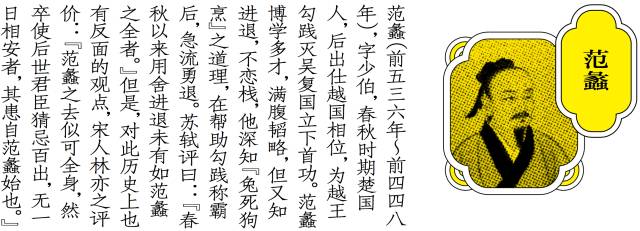 范蠡
范蠡(前五三六年～前四四八
年)，字少伯，春秋时期楚国
人，后出仕越国相位，为越王
勾践灭吴复国立下首功。范蠡
博学多才，满腹韬略，但又知
进退，不恋栈，他深知『兔死狗
烹』之道理，在帮助勾践称霸
后，急流勇退。苏轼评曰：『春
秋以来用舍进退未有如范蠡
之全者。』但是，对此历史上也
有反面的观点，宋人林亦之评
价：『范蠡之去似可全身，然
卒使后世君臣猜忌百出，无一
日相安者，其患自范蠡始也。』